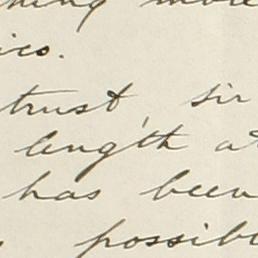 thing more
ics.
trust, sir
length at
has been
possib